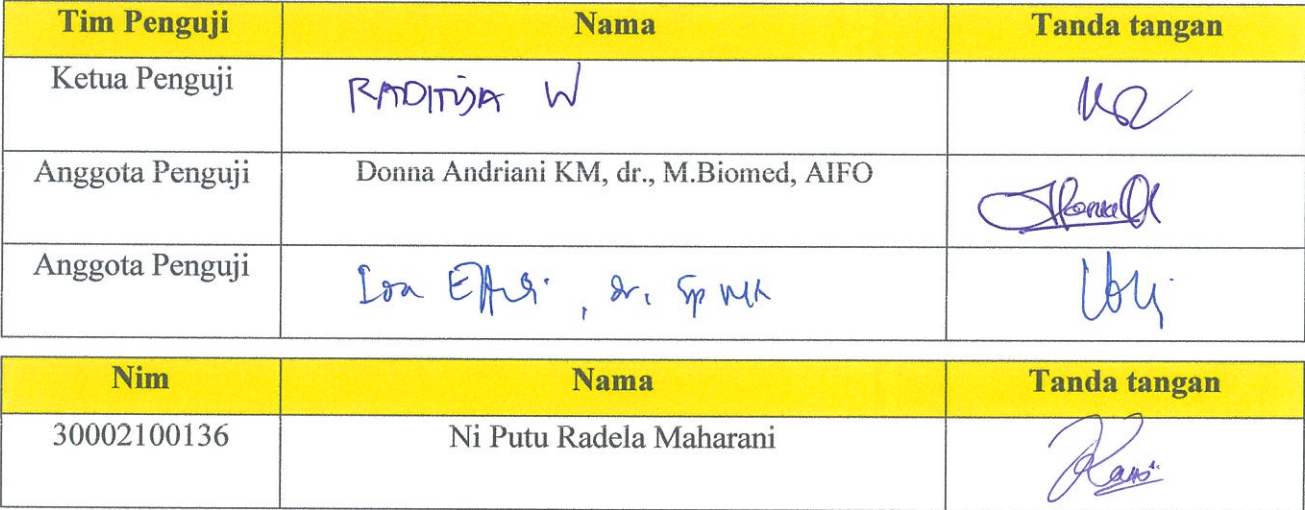 Tim Penguji Nama Tanda tangan
Ketua Penguji RADITYA W
Anggota Penguji Donna Andriani KM, dr., M.Biomed, AIFO
Anggota Penguji , dr. Sp MK
Nim Nama Tanda tangan
30002100136 Ni Putu Radela Maharani